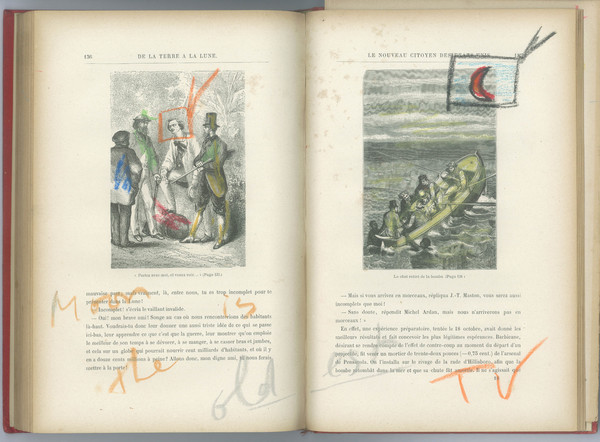 DE LA TERRE A LA LUNE.
présenter dans la Lune!
— Incomplet! s'écria le vaillant invalide.
— Oui! mon brave ami! Songe au cas où nous rencontrerions des habitants
là-haut. Voudrais-tu donc leur donner une aussi triste idée de ce qui se passe
ici-bas, leur apprendre ce que c'est que la guerre, leur montrer qu'on emploie
le meilleur de son temps à se dévorer, à se manger, à se casser bras et jambes,
et cela sur un globe qui pourrait nourrir cent milliards d'habitants, et où il y
en a douze cents millions à peine? Allons donc, mon digne ami, tu nous ferais
mettre à la porte!
Moon is
the old est TV
LE NOUVEAU CITOYEN DES ÉTATS-UNIS.
Le chat retiré de la bombe.
— Mais si vous arrivez en morceaux, répliqua J.-T. Maston, vous serez aussi
incomplets que moi!
— Sans doute, répondit Michel Ardan, mais nous n'arriverons pas en
morceaux! »
En effet, une expérience préparatoire, tentée le 18 octobre, avait donné les
meilleurs résultats et fait concevoir les plus légitimes espérances. Barbicane,
désirant se rendre compte de l'effet de contre-coup au moment du départ d'un
projectile, fit venir un mortier de trente-deux pouces (— 0,75 cent.) de l'arsenal
de Pensacola. On l'installa sur le rivage de la rade d'Hillisboro, afin que la
bombe retombât dans la mer et que sa chute fût amortie. Il ne s'agissait que